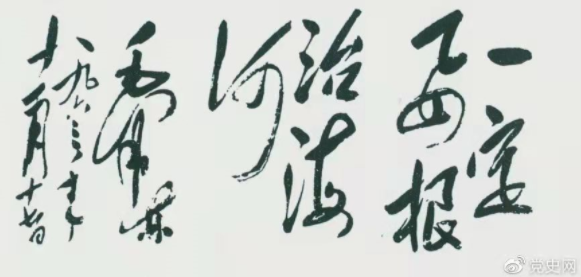 一定
要根
治海
河
毛泽东
一九六三年
十一月十七日
@党史网